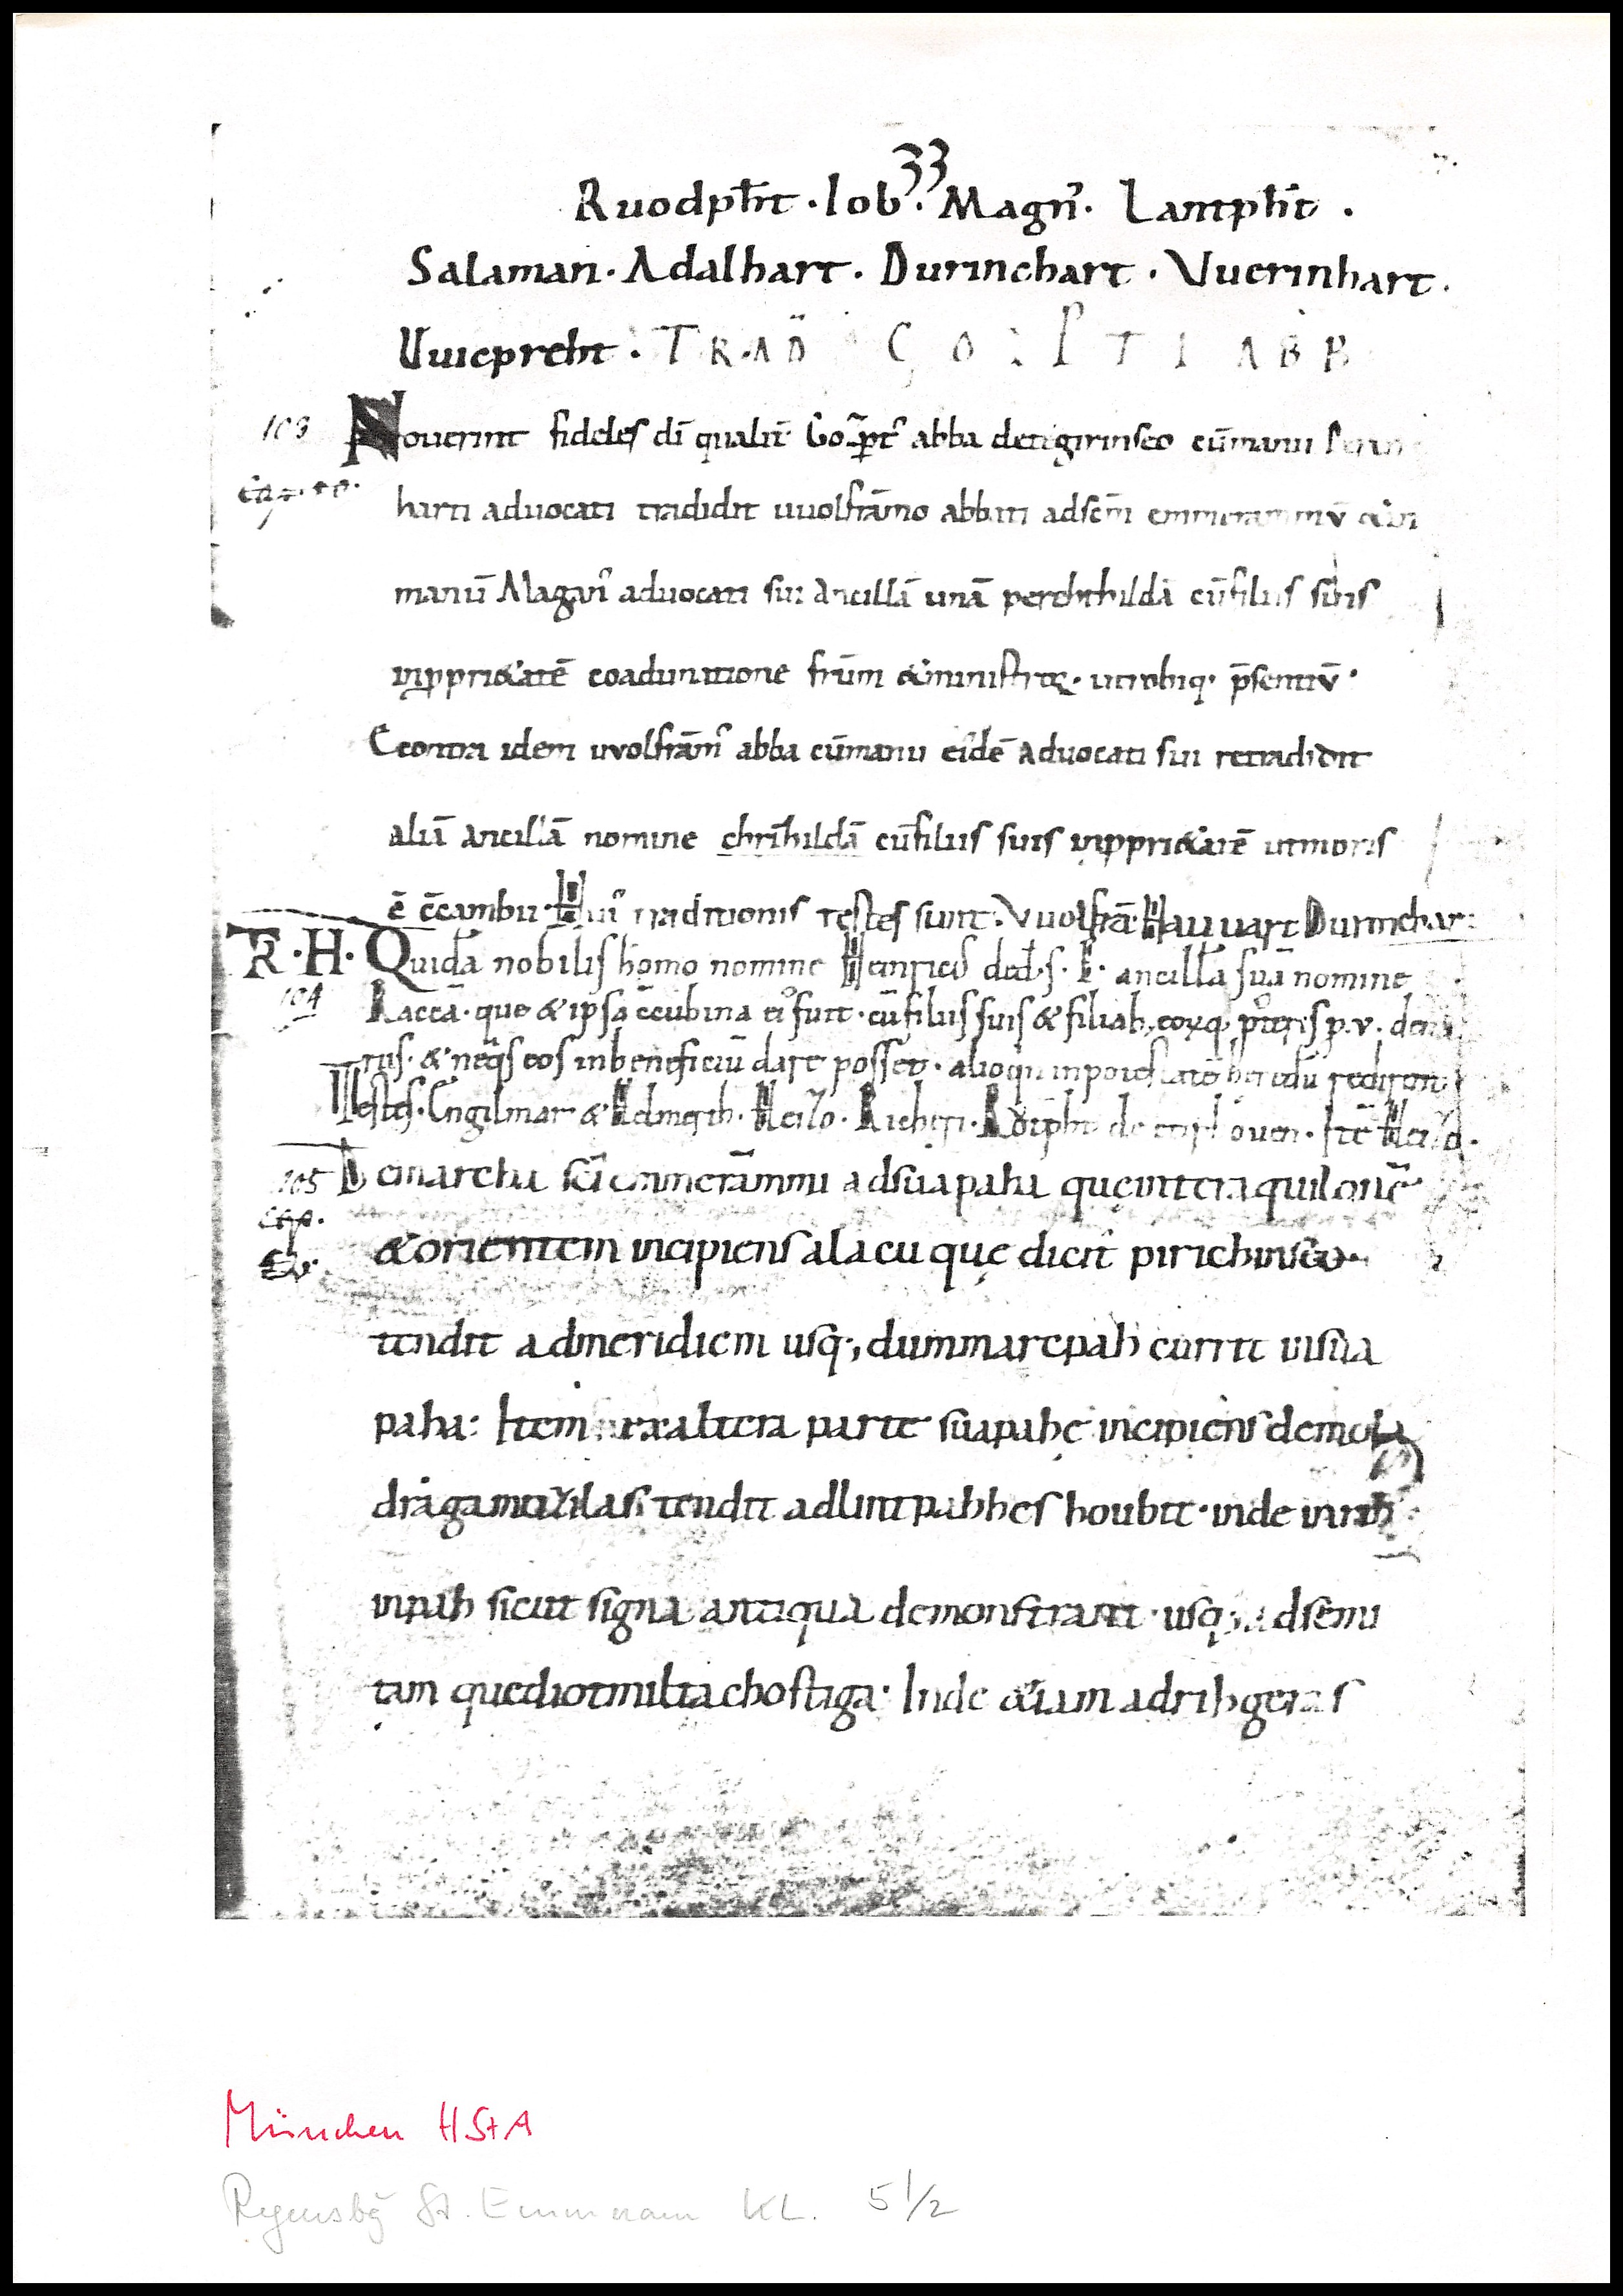 33
Ruodpħt · Iob · Magn᾿ · Lantpħt ·
Salaman · Adalhart · Durinchart · Vuerinhart ·
Vuicpreht · TRAD COZPTI ABB
103 Nouerint fideles dī qualit̄ Gozp̄t᾿ abba detegirinseo cū manu
harti aduocati tradidit uuolfrāmo abbati ad sc̄m emmerammū
manū Magani aduocati sui Ancillā unā perehthildā cū filiis suis
in ppri&atē coadunatione frūm & ministroꝝ · utrobiq· p̄sentiū ·
Econtra idem uuolfrām᾿ abba cū manu eidē Aduocati sui retradidit
aliā Ancillā nomine chrīhildā cū filiis suis in ppri&atē ut moris
ē c̄cambii · Hui᾿ traditionis testes sunt · Vuolfrā · Hauuart Durinchar
TR · H · Quidā nobilis homo nomine Heinric᾿ ded · S · E · ancillā suā nomine
104 Raccā · que & ipsa c̄cubina ei᾿ fuit · cū filiis suis & filiab; eoꝝq· p̄teris p · v · dena
riis · & neq̇s eos in beneficiū dare posset · alioqin in potestatē heredū redirent
Testes · Engilmar & Admerth · Heilo · Richeri ·
105 De marchu sc̄i emmerāmmi ad suapaha quę inter aquilonē
cap.
& orientem incipiens a lacu quę dicit᾿ pirichinseo ·
tendit ad meridiem usq·, dum marepah currit in sua
paha: Item ex altera parte suapahe incipiens de
tendit ad lintpahhes houbit · inde in
inpah sicut signa antiqua demonstrant · usq·, ad semi
tam que diotmilta chostiga · Inde &iam ad rihgeres
München HStA
Regensbg St. Emmeram KL. 5 1/2